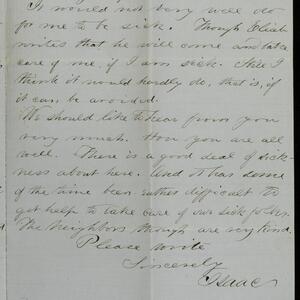 It would not very well do
for me to be sick. Though Elijah
writes that he will come and take
care of me, if I am sick. Still I
think it would hardly do, that is, if
it can be avoided.
We should like to hear from you
very much. How you are all
well. There is a good deal of sick-
ness about here. And it has some
of the time been rather difficult to
get help to take care of our sick
The neighbors though are very kind.
Please write
Sincerely
Isaac